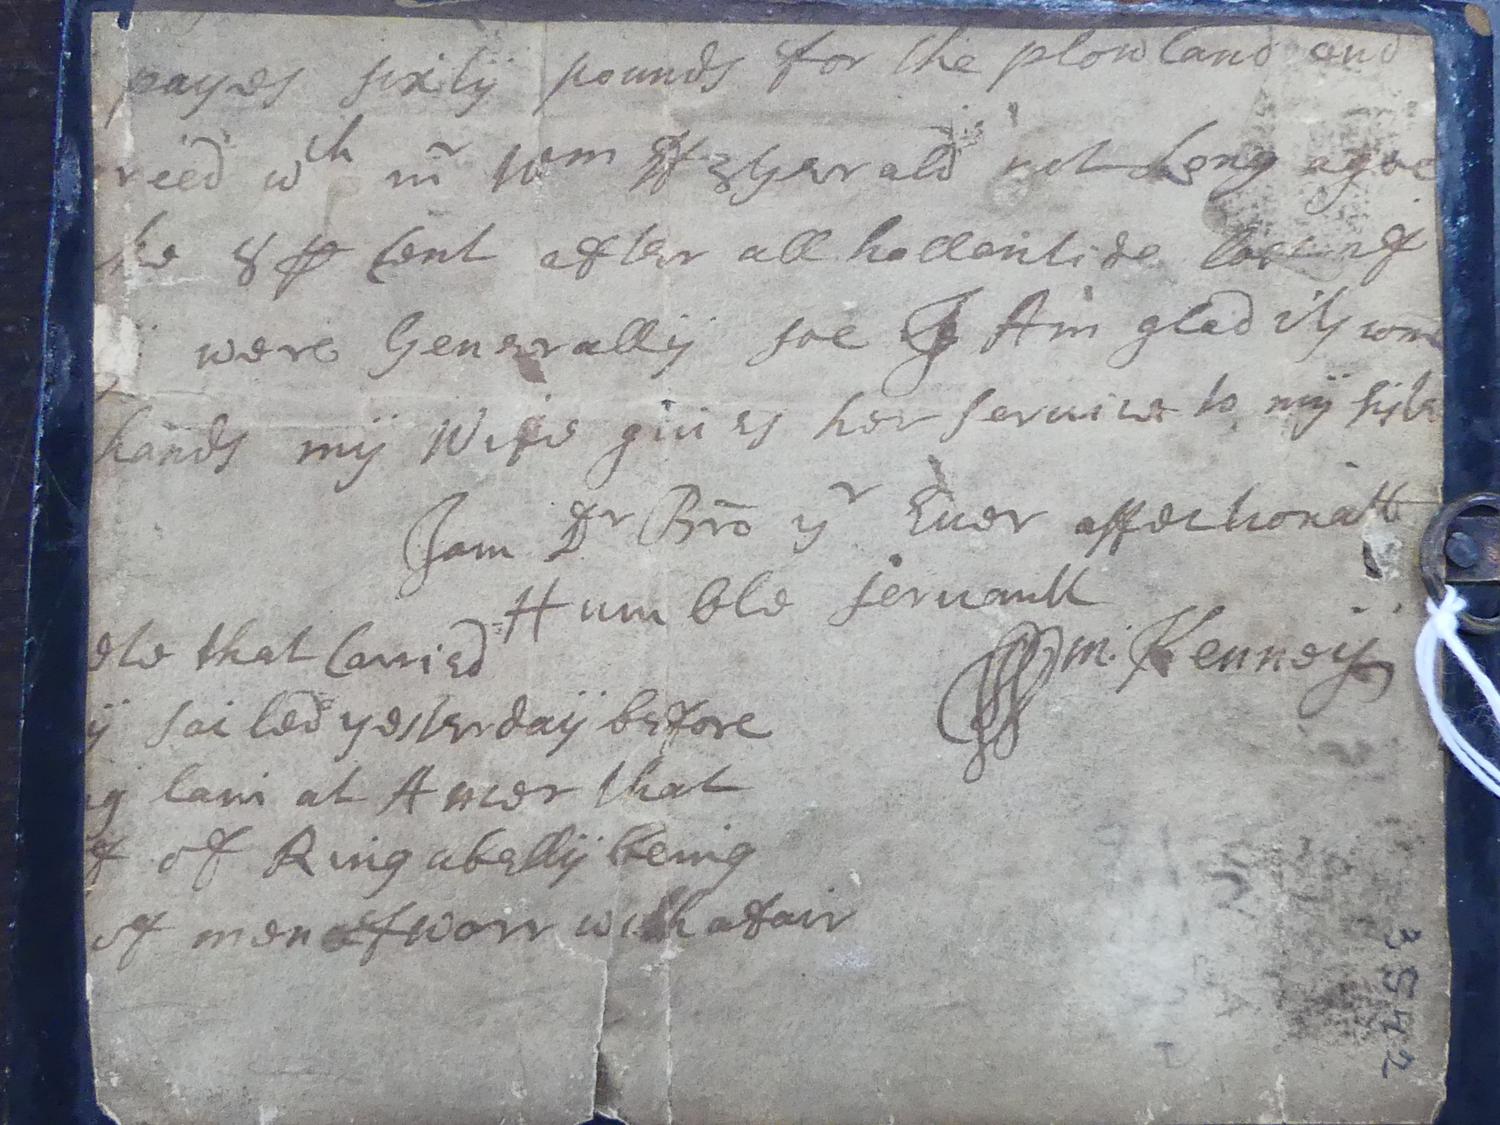 payes sixtÿ pounds for the plowland and
reed wth mr Wm Fitzgerrald not Long agoe
the 8 p Cent after all hollentide
were Generallÿ soe I Am glad itts
hands mÿ Wife giues her seruice to mÿ
I am Dr Bro yr Euer affectionatt
Humble seruantt
Wm. Kenneÿ
that Carried
sailed yesterdaÿ before
lain at Ancer that
of Ringabellÿ being
of men of warr with a fair
3542